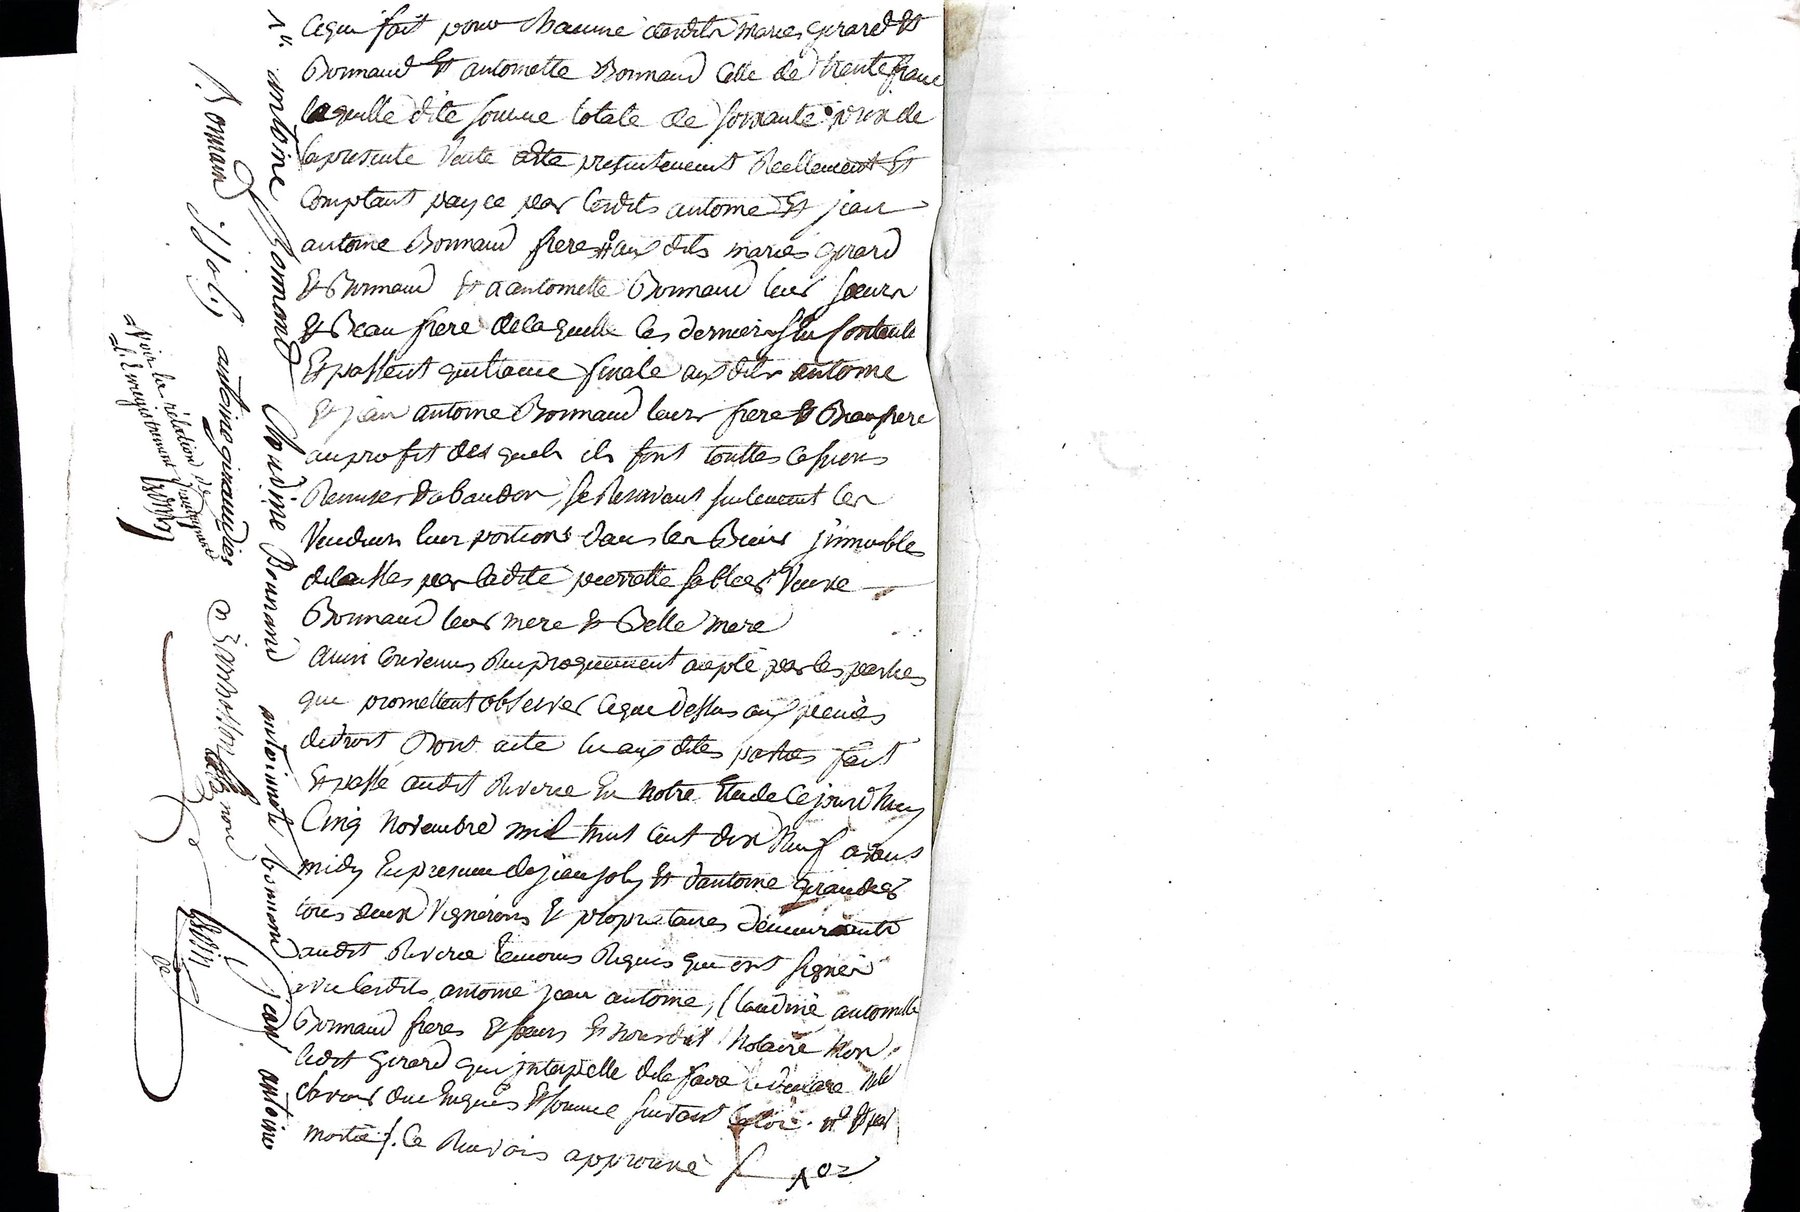 Ce qui fait pour chacune desdits mariés girard et
Bonnaud et antoinette Bonnaud celle de trente francs
laquelle dite somme totale de soixante prix de
la presente Vente a été presentement Reellement et
Comptant payée par lesdits antoine et jean
antoine Bonnaud freres aux dits mariés girard
et Bonnaud et a antoinette Bonnaud leur soeurs
et Beau frere de laquelle les derniers se contente
Et passent quittance finale aux dits antoine
et jean antoine Bonnaud leurs frere et Beaufrere
au profit des quels ils font touttes cessions
Remises d'abandon, se Reservant seulement les
Vendeurs leur portions dans les Biens jmmeubles
délaissés par ladite pierrette Veuve
Bonnaud leur mere et Belle mere
ainsi Convenus Reciproquement accepté par les parties
qui promettent observer ce que dessus aux peines
de droit Dont acte lu aux dites parties fait
Et passé audit Riverie En notre Etude Cejourd'huy
Cinq Novembre mil huit cent dix Neuf avant
midy En presence de jean joly et d'antoine giraudier
tous deux Vignerons et proprietaires demeurants
audit Riverie temoins Requis qui ont signés
avec lesdits antoine jean antoine, Claudine antoinette
Bonnaud freres et soeurs et nousdit Notaire Non
ledit girard qui jnterpellé de le faire a déclaré ne le
savoir due Enquis et sommé suivant la loi. et par
moitié /. Ce Renvois approuvé
102
antoine Bonnand Claudine Bonnand antoinete bonnand Jean antoine
Bonnand j joly antoine giraudier
Voir la rélation de
L'Enregistrement